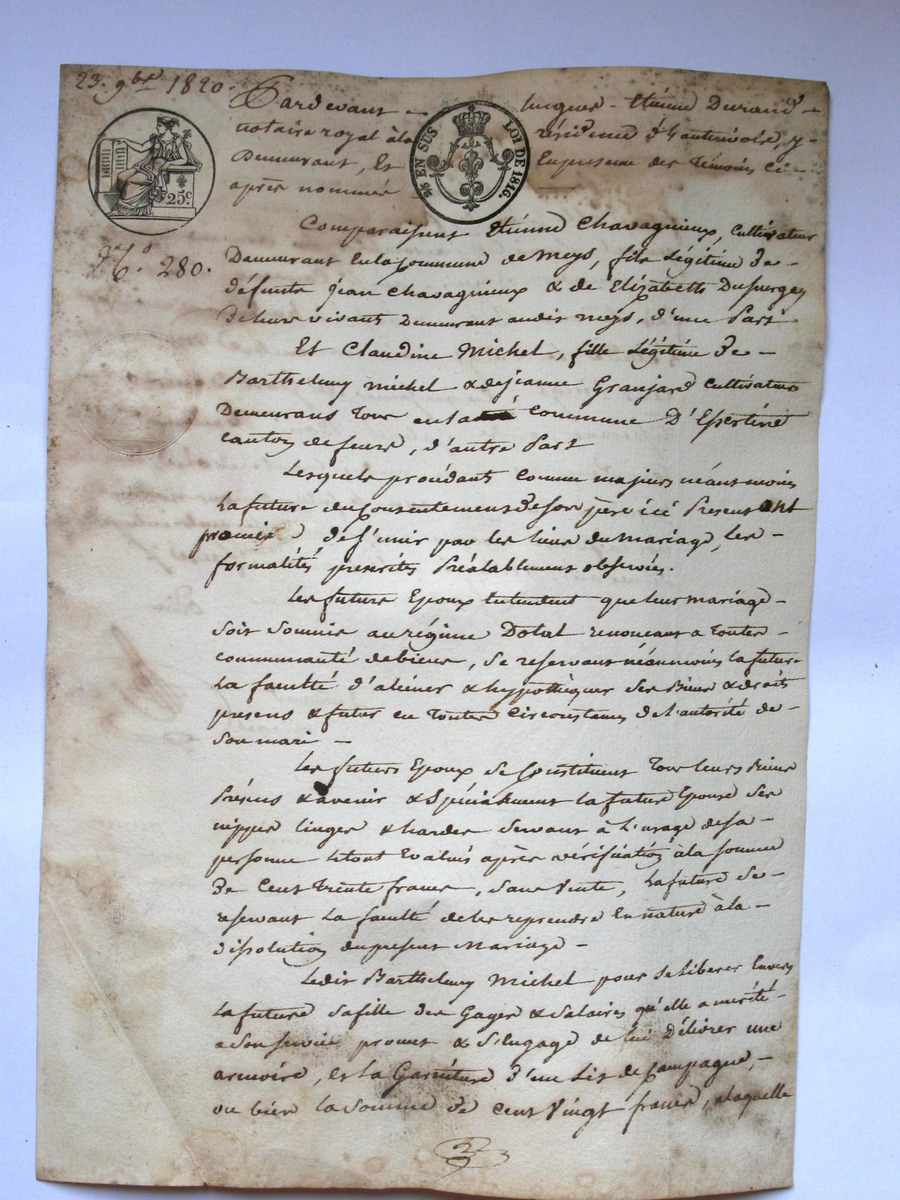 23. 9bre 1820.
Pardevant Jacques-Etienne Durand
notaire royal à la résidence d'hauterivoire, y
Demeurant, Et En presence des Témoins Ci-
après nommés
25c
¼ EN SUS LOI DE 1816.
No 280.
Comparaissent Etienne Chavagnieux, Cultivateur
Demeurant En la Commune de meys, fils Légitime de
défunts jean Chavagnieux & de Elizabeth
De leurs vivants Demeurant audit meys, d'une Part
Et Claudine Michel, fille Légitime De
Barthelemy michel & de jeanne Granjard Cultivateurs
Demeurans Tous en la Commune D'Essertine
canton de feurs, d'autre Part
Lesquels procédants Comme majeurs néantmoins
La future du Consentement de son père ici Present ont
promis De s'unir par les liens du mariage, Les
formalités prescrites Préalablement observées.
Les futurs Epoux Entendent que leur mariage
Soit Soumis au régime Dotal renonceant a toutes
communauté de biens, se reservant néanmoins la future
La faculté d'aliéner & hypothéquer Ses Biens & droits
presens & futur en Toutes Circonstances de l'autorité de
Son mari
Les futurs Epoux se Constituent Tous leurs Biens
Présens & avenir & Spécialement la future Epouse Ses
nippes linges & hardes Servans à L'usage de sa
personne le tout Evalués après vérification à la somme
De Cent Trente francs, Sans Vente, La future se
reservant La faculté de les reprendre En nature à la
Dissolution du present Mariage
Ledit Barthelemy Michel pour se liberer Envers
La future Sa fille des Gages & Salaires qu'elle a mérité
a Son Service promet & S'engage de lui Délivrer une
armoire, et La Garniture d'un Lit de Campagne,
ou bien la Somme de cent Vingt francs, a laquelle